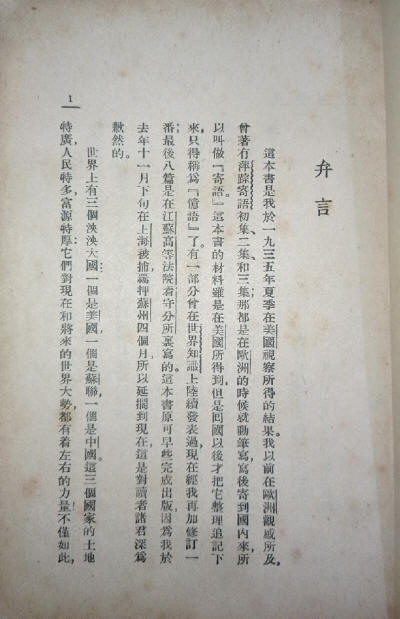 弁言
這本書是我於一九三五年夏季在美國視察所得的結果。我以前在歐洲觀感所及，
曾著有萍踪寄語初集、二集和三集，那都是在歐洲的時候就動筆寫，寫後寄到國內來，所
以叫做『寄語』。這本書的材料雖是在美國所得到，但是回國以後才把它整理追記下
來，只得稱爲『憶語』了。有一部分曾在世界知識上陸續發表過，現在經我再加修訂一
番；最後八篇是在江蘇高等法院看守分所裏寫的。這本書原可早些完成出版，因爲我於
去年十一月下旬在上海被捕，羈押蘇州四個月，所以延擱到現在，這是對讀者諸君深爲
歉然的。
世界上有三個泱泱大國：一個是美國，一個是蘇聯，一個是中國。這三個國家的土地
特廣，人民特多，富源特厚；它們對現在和將來的世界大勢，都有着左右的力量。不僅如此，
1